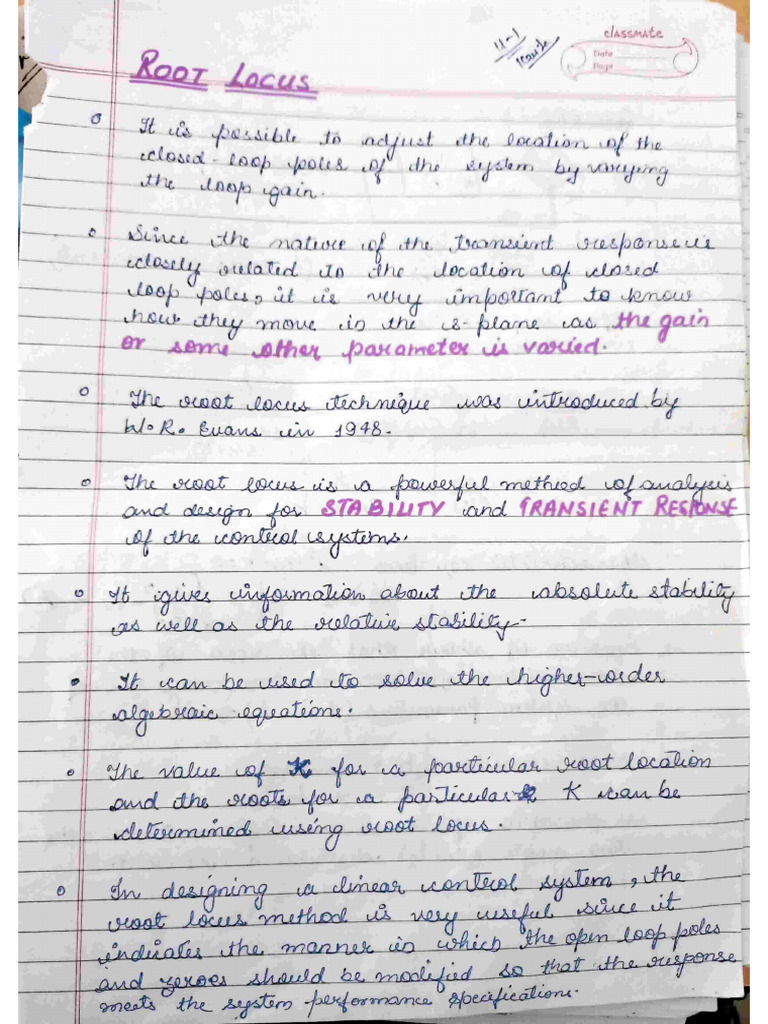 classmate
Date
Page
ROOT LOCUS
It is possible to adjust the location of the
closed-loop poles of the system by varying
the loop gain.
Since the nature of the transient response is
closely related to the location of closed
loop poles, it is very important to know
how they move in the s-plane as the gain
or some other parameter is varied.
The root locus technique was introduced by
W.R. Evans in 1948.
The root locus is a powerful method of analysis
and design for STABILITY and TRANSIENT RESPONSE
of the control systems.
It gives information about the absolute stability
as well as the relative stability.
It can be used to solve the higher-order
algebraic equations.
The value of K for a particular root location
and the roots for a particular K can be
determined using root locus.
In designing a linear control system, the
root locus method is very useful since it
indicates the manner in which the open loop poles
and zeroes should be modified so that the response
meets the system performance specifications.